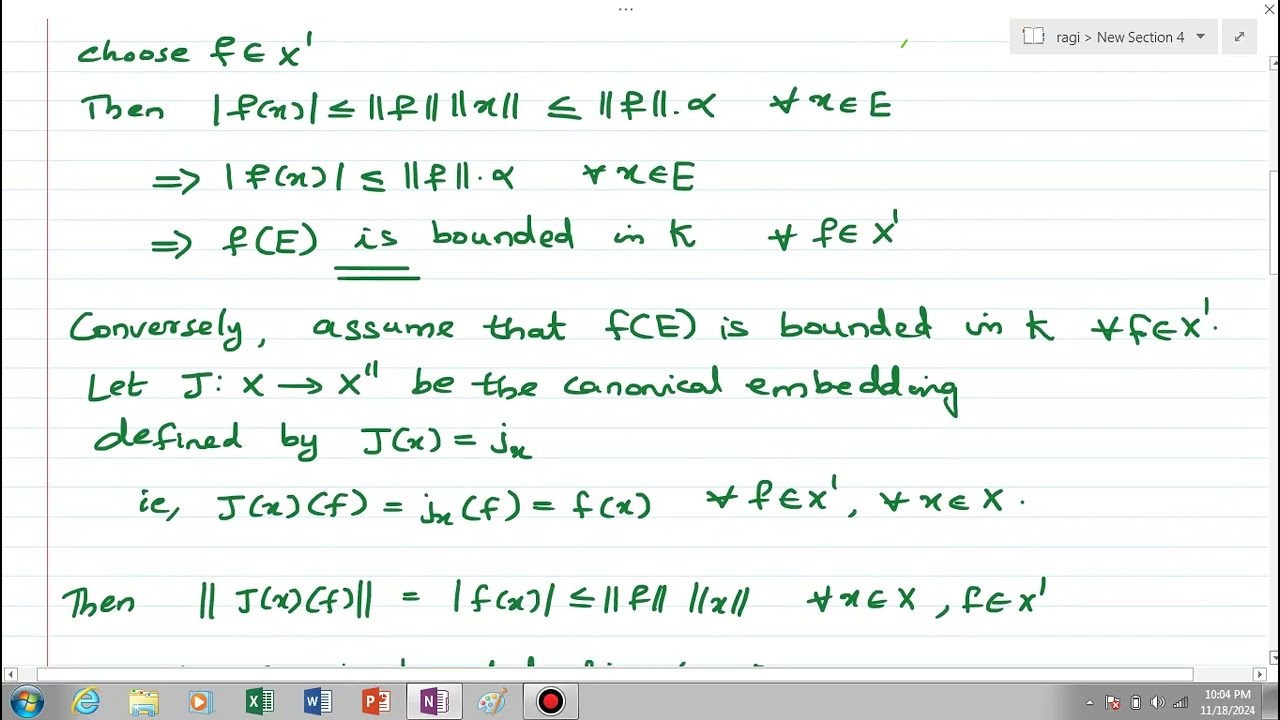 ...
ragi > New Section 4
choose f ∈ X'
Then |f(x)| ≤ ||f|| ||x|| ≤ ||f||.α ∀ x ∈ E
⇒ |f(x)| ≤ ||f||.α ∀ x ∈ E
⇒ f(E) is bounded in K ∀ f ∈ X'
Conversely, assume that f(E) is bounded in K ∀ f ∈ X'.
Let J: X → X'' be the canonical embedding
defined by J(x) = jₓ
ie, J(x)(f) = jₓ(f) = f(x) ∀ f ∈ X', ∀ x ∈ X.
Then || J(x)(f)|| = |f(x)| ≤ ||f|| ||x|| ∀ x ∈ X, f ∈ X'
10:04 PM
11/18/2024